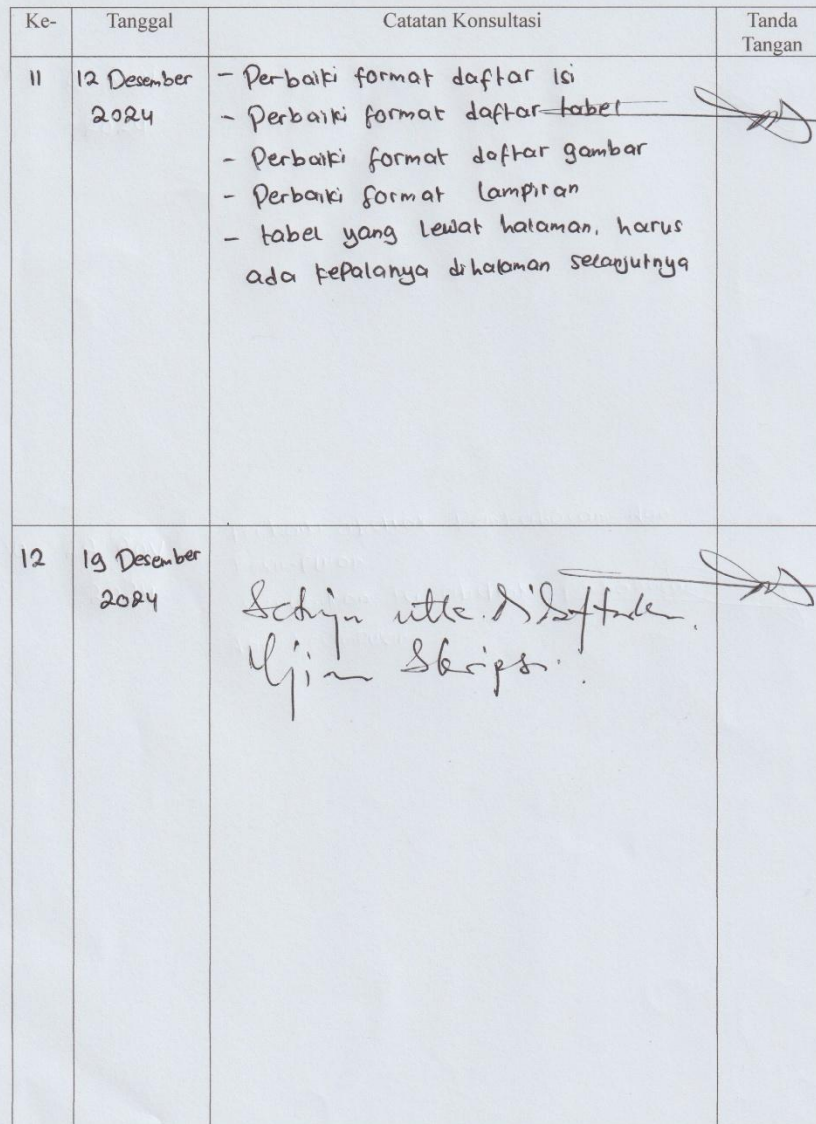 Ke- Tanggal Catatan Konsultasi Tanda Tangan
11 12 Desember 2024
- Perbaiki format daftar isi
- Perbaiki format daftar tabel
- Perbaiki format daftar gambar
- Perbaiki format Lampiran
- tabel yang lewat halaman, harus
ada kepalanya dihalaman selanjutnya
12 19 Desember 2024
Setuju utk. didaftarkan
Ujian Skripsi.